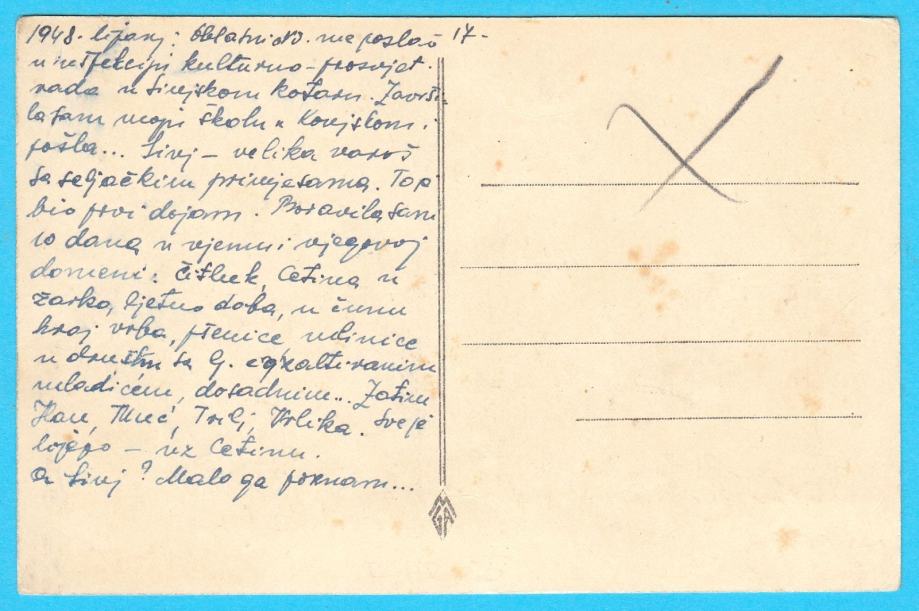 1948. lipanj: Oblasni NO. me poslao 17-
u inspekciju kulturno-prosvjet.
rada u Sinjskom kotaru. Završi-
la sam moju školu u Konjskom i
pošla... Sinj – velika varoš
sa seljačkim primjesama. To je
bio prvi dojam. Boravila sam
10 dana u njemu i njegovoj
domeni: Čitluk, Cetina u
žarko, ljetno doba, u čunu
kraj vrba, pšenice
u društvu sa G. egzaltiranim
mladićem, dosadnim... Zatim
Han, Muć, Trilj, Vrlika. Sve je
lijepo – uz Cetinu.
A Sinj? Malo ga poznam...
MGA